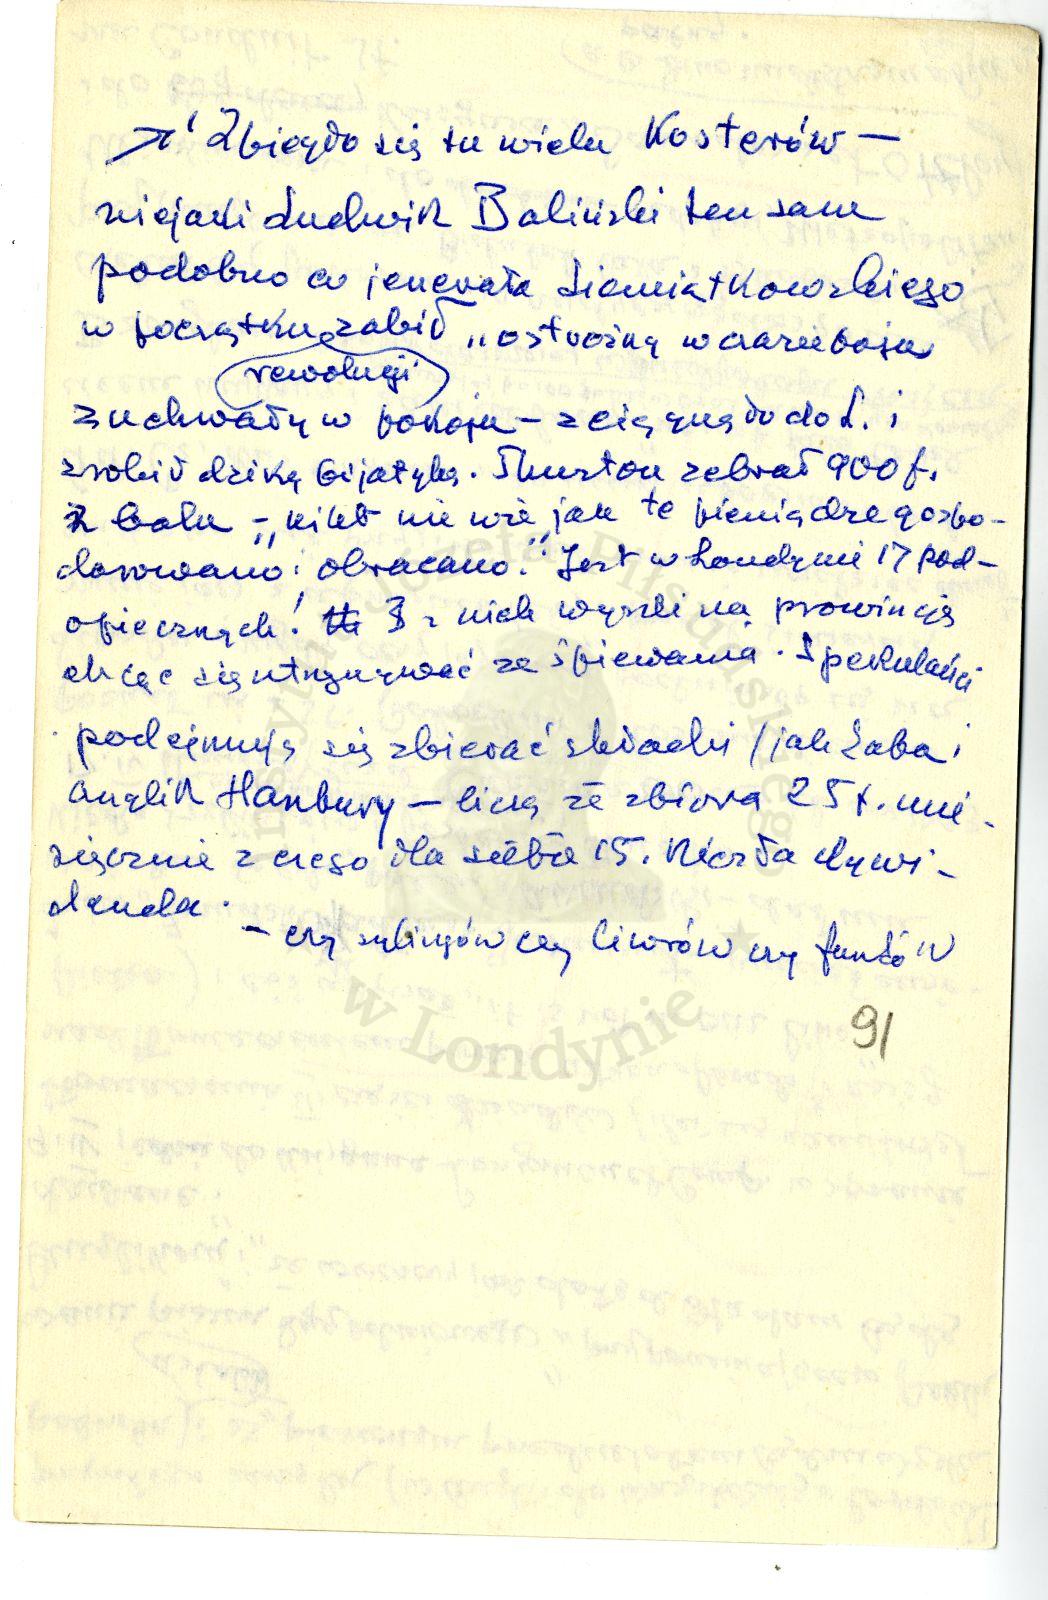 Zbiegło się tu wielu Kosterów —
niejaki Ludwik Baliński ten sam
podobno co jenerała Siemiątkowskiego
w początku zabił „ostrożny w czasie boju
rewolucji
zuchwały w pokoju — ściągnął do L. i
zrobił dziką bijatykę. Thurston zebrał 900 f.
z balu — „nikt nie wie jak te pieniądze gospo-
darowano i obracano." Jest w Londynie 17 pod-
opiecznych! 3 z nich wyszli na prowincję
chcąc się utrzymywać ze śpiewania. Spekulanci
podejmują się zbierać składki / jak Żaba i
Anglik Hanbury — liczą że zbiorą 25 f. mie-
sięcznie z czego dla siebie 15. Niezła dywi-
denda.
— czy szylingów czy liwrów czy funtów
91
Instytut Józefa Piłsudskiego
w Londynie